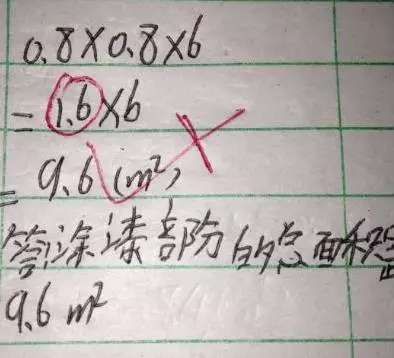 0.8×0.8×6
=1.6×6
=9.6(m²)
答涂漆部防的总面积是
9.6 m²